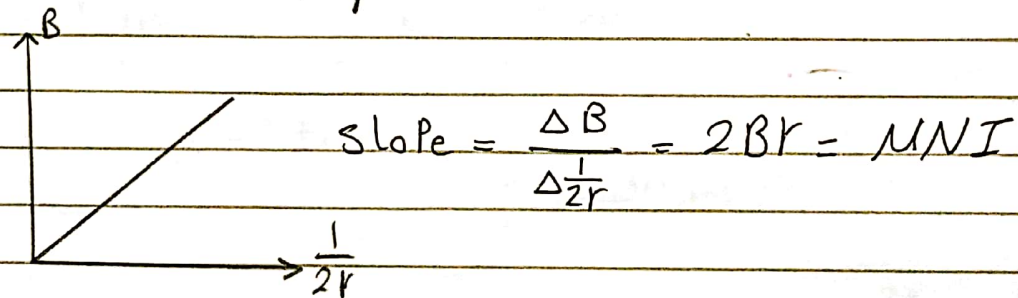 B
slope = ΔB / Δ 1/2r = 2Br = μNI
1/2r